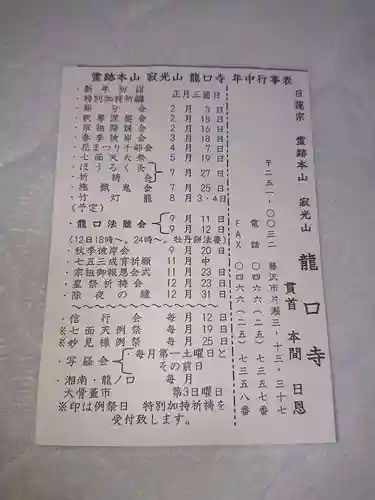 霊跡本山 寂光山 龍口寺 年中行事表
・新年初詣
・特別加持祈祷 正月三箇日
・節分会 2月3日
・釈尊涅槃会 2月15日
・宗祖降誕会 2月16日
・春季彼岸会 3月18日
・花まつり千部会 4月7日
・七面天大祭 5月19日
・ほうろく灸
・祈祷会 7月27日
・施餓鬼会 7月25日
・竹灯龍 8月3・4日
(予定)
・龍口法難会 9月11日
9月12日
(12日18時〜。24時〜。牡丹餅法要)
・秋季彼岸会 9月20日
・七五三成育祈願 11月中
・宗祖御報恩会式 11月23日
・星祭祈祷会 12月23日
・除夜の鐘 12月31日
・信行会 毎月12日
※七面天例祭 毎月19日
※妙見様例祭 毎月25日
・写経会 ・毎月第一土曜日と
その前日
・湘南・龍ノ口 毎月
大骨董市 第3日曜日
※印は例祭日 特別加持祈祷を
受付致します。
日蓮宗 霊跡本山 寂光山 龍口寺
貫首 本間日恩
〒二五一・〇〇三二 藤沢市片瀬三・十三・三十七
電話 〇四六六(二五)七三五七番
FAX 〇四六六(二五)七三五八番